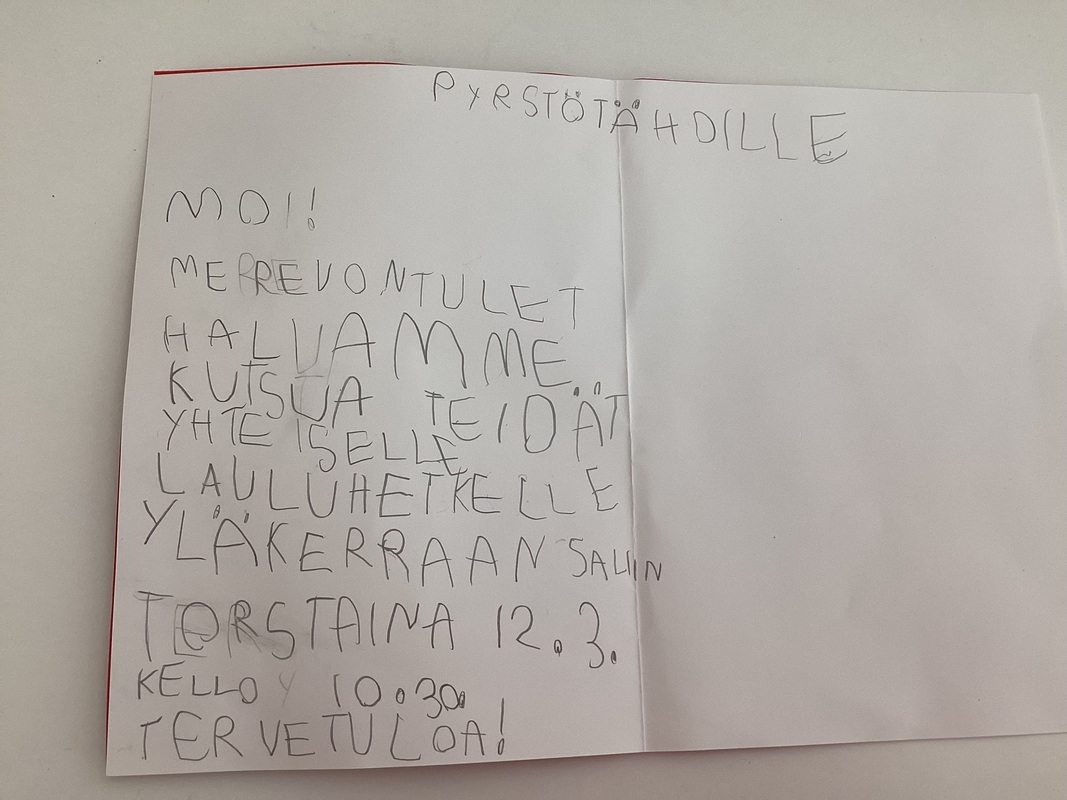 PYRSTÖTÄHDILLE
MOI!
ME REVONTULET
HALUAMME
KUTSUA TEIDÄT
YHTEISELLE
LAULUHETKELLE
YLÄKERRAAN SALIIN
TORSTAINA 12.3.
KELLO 10.30.
TERVETULOA!